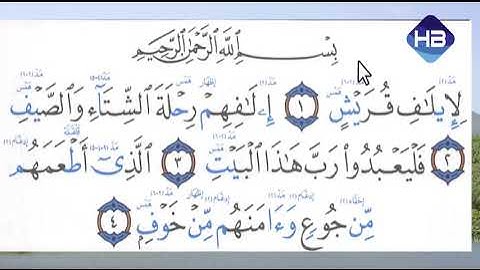 HB
بِسْمِ اللَّهِ الرَّحْمَٰنِ الرَّحِيمِ
لِإِيلَٰفِ قُرَيْشٍ ١ إِۦلَٰفِهِمْ رِحْلَةَ الشِّتَآءِ وَالصَّيْفِ
٢ فَلْيَعْبُدُوا۟ رَبَّ هَٰذَا الْبَيْتِ ٣ الَّذِىٓ أَطْعَمَهُم
مِّن جُوعٍ وَءَامَنَهُم مِّنْ خَوْفٍ ٤